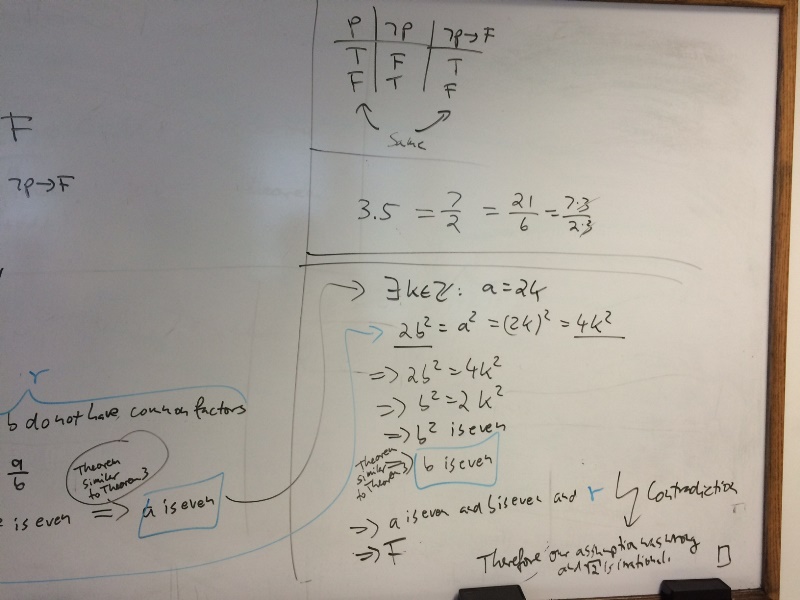 F
¬p→F
r
b do not have common factors
a/b
Theorem
similar
to Theorem 3
is even ⇒ a is even
p | ¬p | ¬p→F
T | F | T
F | T | F
Same
3.5 = 7/2 = 21/6 = 7·3/2·3
∃k∈ℤ: a=2k
2b² = a² = (2k)² = 4k²
⇒ 2b² = 4k²
⇒ b² = 2k²
⇒ b² is even
Theorem
similar
to Theorem 3
⇒ b is even
⇒ a is even and b is even and r
Contradiction
⇒ F
Therefore our assumption was wrong
and √2 is irrational. □